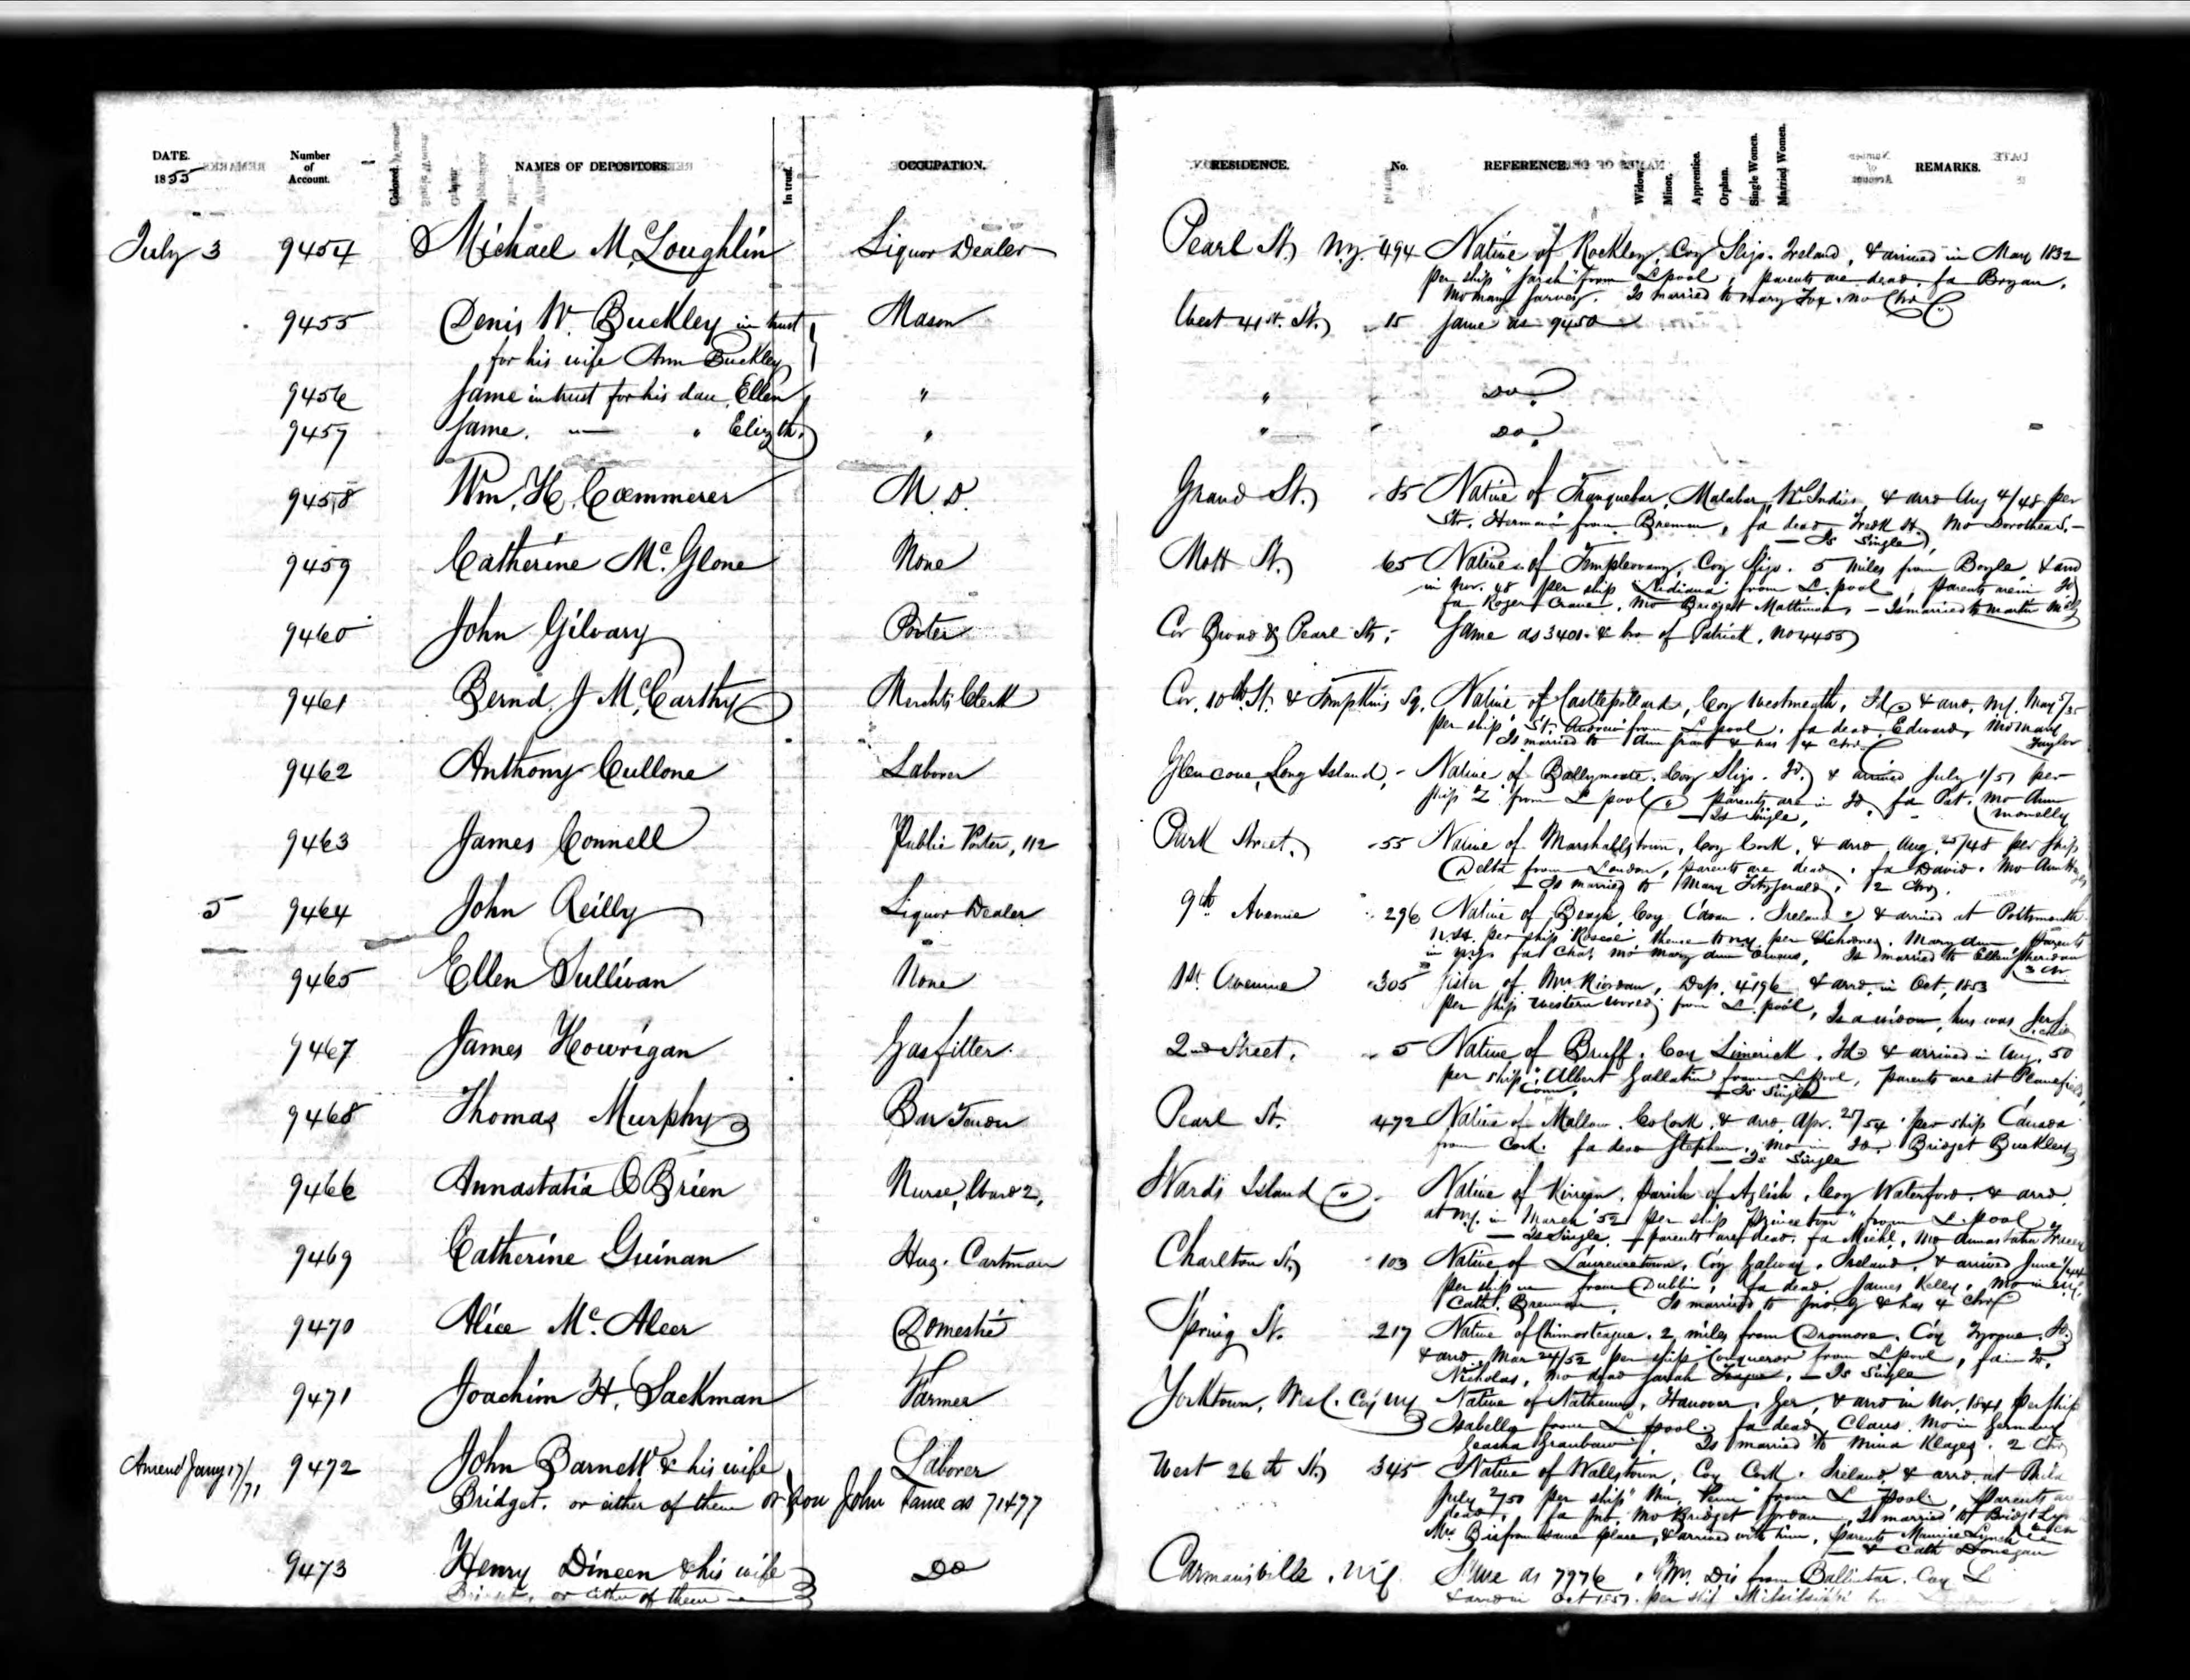 DATE. 1855 Number of Account. Colored. NAMES OF DEPOSITORS. In trust. OCCUPATION. RESIDENCE. No. REFERENCE. Widow. Minor. Apprentice. Orphan. Single Women. Married Women. REMARKS.
July 3 9454 Michael McLoughlin Liquor Dealer Pearl St. N.Y. 494 Native of Rockley, Coy Sligo. Ireland, & arrived in May 1832
per ship "Sarah" from L.pool, parents are dead, fa Bryan,
mo Mary Garvey. Is married to Mary Fox. no Chn
9455 Denis W. Buckley in trust Mason West 41st. St. 15 Same as 9450
for his wife Ann Buckley
9456 Same in trust for his dau. Ellen " " Do.
9457 Same. — " Elizth. " " Do.
9458 Wm. H. Cœmmerer M.D. Grand St. 85 Native of Tranquebar, Malabar, & arrd Aug 4/48 per
Str. Hermann from Bremen, fa dead Fredk H, mo Dorothea S. —
— Is Single
9459 Catherine Mc.Glone None Mott St. 65 Native of Coy Sligo. 5 miles from Boyle, & arrd
in Nov. 48 per ship Indiana from L.pool, parents are in Id
fa Roger Crane, mo Bridget — Is married to Martin
9460 John Gilvary Porter Cor Broad & Pearl Sts. Same as 3401. & bro of Patrick, no 4455
9461 Bernd. J McCarthy Merchts Clerk Cor. 10th St. & Tompkins Sq. Native of Castlepollard, Coy Westmeath, Id & arrd. N.Y. May
per ship St. Andrew from L.pool. fa dead Edward, mo Mary
Is married to Ann Grant & has 4 Chn Taylor
9462 Anthony Cullone Laborer Glen cove, Long Island, Native of Ballymote. Coy Sligo. Id. & arrived July 1/51 per
ship Z from L.pool parents are in Id. fa Pat. mo Ann
— Is Single,
9463 James Connell Public Porter, 112 Park Street. 55 Native of Marshallstown, Coy Cork, & arrd Aug. 25/48 per ship
Delta from London, parents are dead. fa David. mo Ann
— Is married to Mary Fitzgerald, 2 Chn.
5 9464 John Reilly Liquor Dealer 9th Avenue 296 Native of Coy Cavan. Ireland & arrived at Portsmouth
N.H. per ship Roscoe thence to N.Y. per Schooner. Mary Ann parents
in N.Y. fa Chas, mo Mary Ann Is married to Ellen Sheridan
3 Chn
9465 Ellen Sullivan None 1st. Avenue 305 Sister of Mrs. Riordan, Dep. 4196 & arrd. in Oct. 1853
per ship Western World from L.pool, Is a widow, hus was
9467 James Howrigan Gasfitter. 2nd Street. 5 Native of Bruff. Coy Limerick. Id & arrived in Aug. 50
per ship "Albert Gallatin" from L.pool, parents are at
Conn. — Is Single
9468 Thomas Murphy Bar Tender Pearl St. 472 Native of Mallow. Co Cork, & arrd. Apr. 25/54 per ship Canada
from Cork. fa dead Stephen, mo in Id. Bridget Buckley
— Is Single
9466 Annastatia O Brien Nurse, Ward 2, Wards Island Native of parish of Aglish, Coy Waterford. & arrd
at N.Y. in March '52 per ship "Princeton" from L.pool
— Is Single. — parents are dead. fa Michl, mo Annastatia
9469 Catherine Guinan Hus. Cartman Charlton St. 103 Native of Laurencetown. Coy Galway. Ireland. & arrived June
per ship from Dublin, fa dead. James Kelly. mo in N.Y.
Cath. Brennan. Is married to Jno. G & has 4 chn
9470 Alice Mc.Aleer Domestic Spring St. 217 Native of 2 miles from Dromore. Coy Tyrone. Id
& arrd. Mar 24/52 per ship Conqueror from L.pool, fa in Id.
Nicholas, mo dead Sarah — Is Single
9471 Joachim H. Sackman Farmer Yorktown, West. Coy NY Native of Hanover. Ger, & arrd in Nov. 1841 per ship
Isabella from L.pool. fa dead Claus. Mo in Germany
Is married to Mina 2 Chn
Amend Jany 17/71 9472 John Barnett & his wife Laborer West 26th St. 345 Native of Wallstown, Coy Cork. Ireland & arrd. at Phila
Bridget. or either of them or Son John same as 71477 July 2/50 per ship "Wm. Penn" from L.pool, parents are
dead, fa Jno, mo Bridget Jordan, Is married to Bridget
Mrs. B is from same place, & arrived with him, parents Maurice Lynch
& Cath Donegan
9473 Henry Dineen & his wife Do Carmansville. N.Y. Same as 7976. Mrs. D is from Coy
Bridget, or either of them — & arrd in Oct 1851. per ship Mississippi